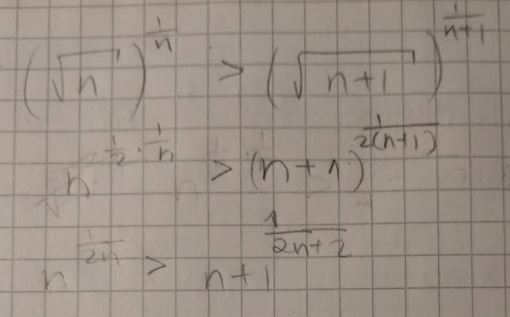 (√n)^(1/n) > (√(n+1))^(1/(n+1))
n^(1/2 · 1/n) > (n+1)^(1/(2(n+1)))
n^(1/(2n)) > n+1^(1/(2n+2))